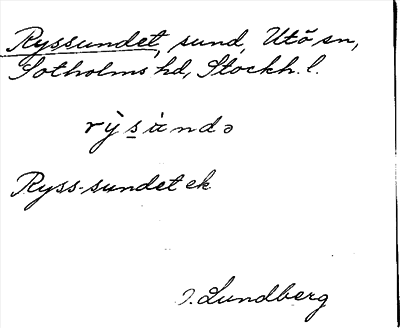 Ryssundet, sund, Utö sn,
Sotholms hd, Stockh. l.
rỳs̲ùndə
Ryss-sundet ek
J. Lundberg